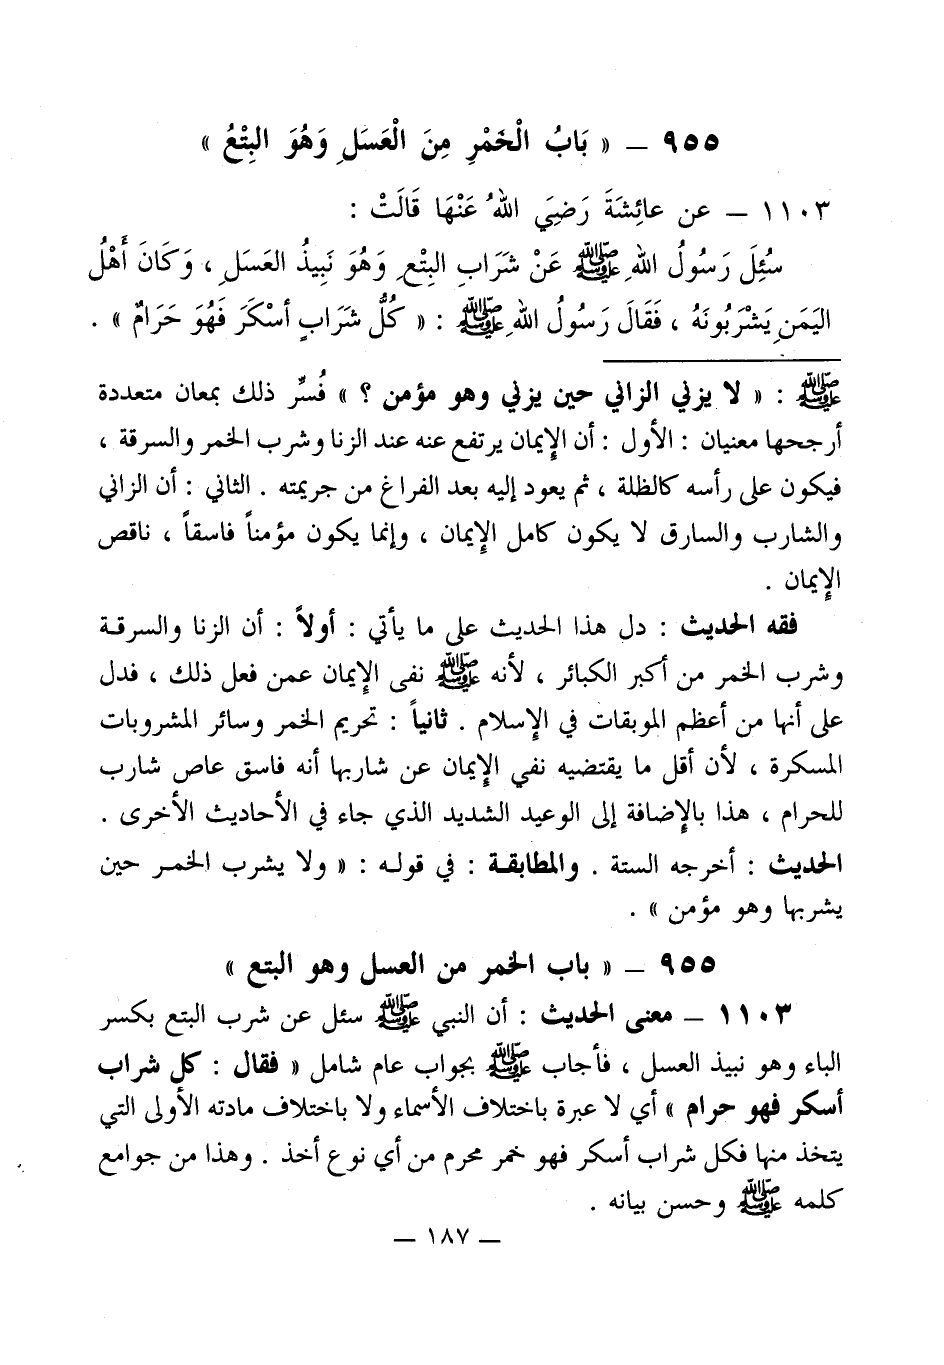 ٩٥٥ – « بَابُ الْخَمْرِ مِنَ الْعَسَلِ وَهُوَ البِتْعُ »
١١٠٣ – عن عائِشَةَ رَضِيَ اللهُ عَنْهَا قَالَتْ :
سُئِلَ رَسُولُ اللهِ ﷺ عَنْ شَرَابِ البِتْعِ وَهُوَ نَبِيذُ العَسَلِ ، وَكَانَ أَهْلُ
اليَمَنِ يَشْرَبُونَهُ ، فَقَالَ رَسُولُ اللهِ ﷺ : « كُلُّ شَرَابٍ أسْكَرَ فَهُوَ حَرَامٌ » .
ﷺ : « لا يزني الزاني حين يزني وهو مؤمن ؟ » فُسِّر ذلك بمعان متعددة
أرجحها معنيان : الأول : أن الإيمان يرتفع عنه عند الزنا وشرب الخمر والسرقة ،
فيكون على رأسه كالظلة ، ثم يعود إليه بعد الفراغ من جريمته . الثاني : أن الزاني
والشارب والسارق لا يكون كامل الإيمان ، وإنما يكون مؤمناً فاسقاً ، ناقص
الإيمان .
فقه الحديث : دل هذا الحديث على ما يأتي : أولاً : أن الزنا والسرقة
وشرب الخمر من أكبر الكبائر ، لأنه ﷺ نفى الإيمان عمن فعل ذلك ، فدل
على أنها من أعظم الموبقات في الإسلام . ثانياً : تحريم الخمر وسائر المشروبات
المسكرة ، لأن أقل ما يقتضيه نفي الإيمان عن شاربها أنه فاسق عاص شارب
للحرام ، هذا بالإضافة إلى الوعيد الشديد الذي جاء في الأحاديث الأخرى .
الحديث : أخرجه الستة . والمطابقة : في قوله : « ولا يشرب الخمر حين
يشربها وهو مؤمن » .
٩٥٥ – « باب الخمر من العسل وهو البتع »
١١٠٣ – معنى الحديث : أن النبي ﷺ سئل عن شرب البتع بكسر
الباء وهو نبيذ العسل ، فأجاب ﷺ بجواب عام شامل « فقال : كل شراب
أسكر فهو حرام » أي لا عبرة باختلاف الأسماء ولا باختلاف مادته الأولى التي
يتخذ منها فكل شراب أسكر فهو خمر محرم من أي نوع أخذ . وهذا من جوامع
كلمه ﷺ وحسن بيانه .
– ١٨٧ –